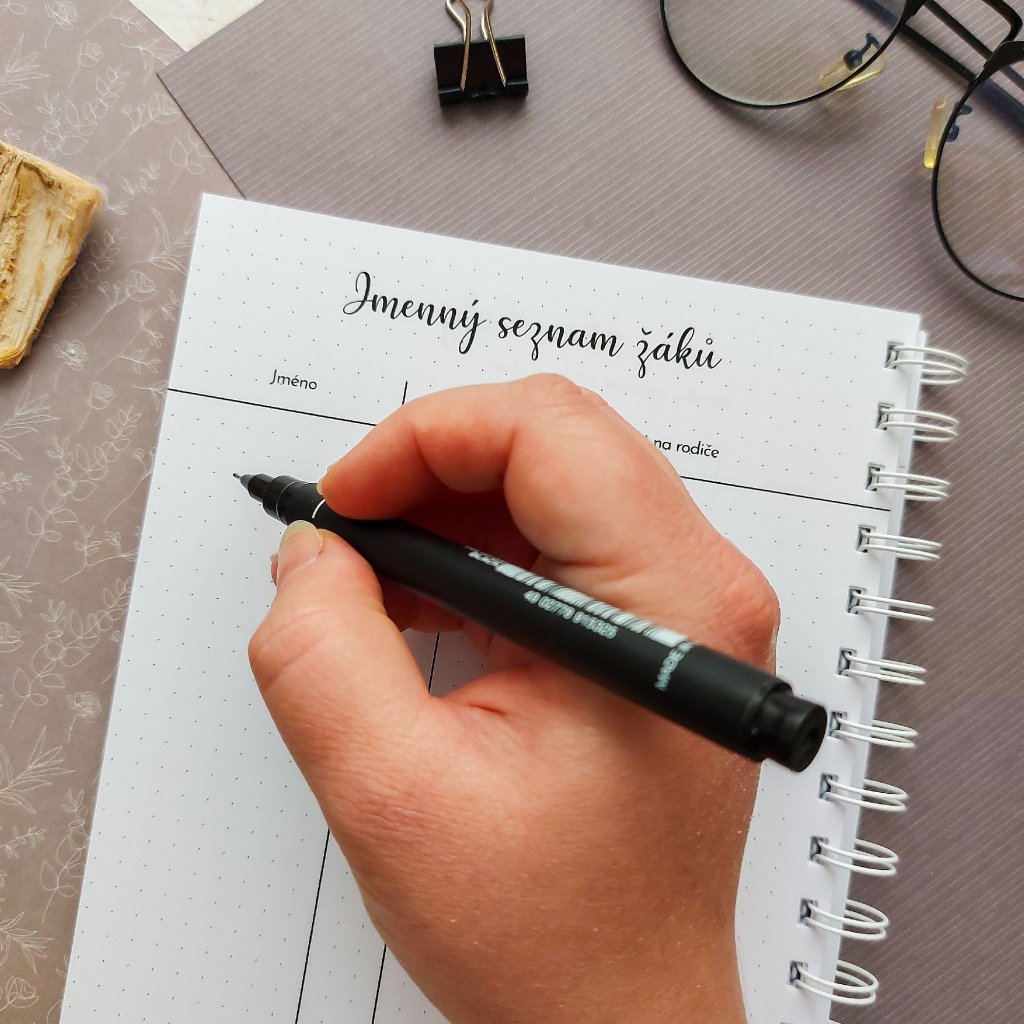 Jmenný seznam žáků
Jméno
na rodiče
MADE